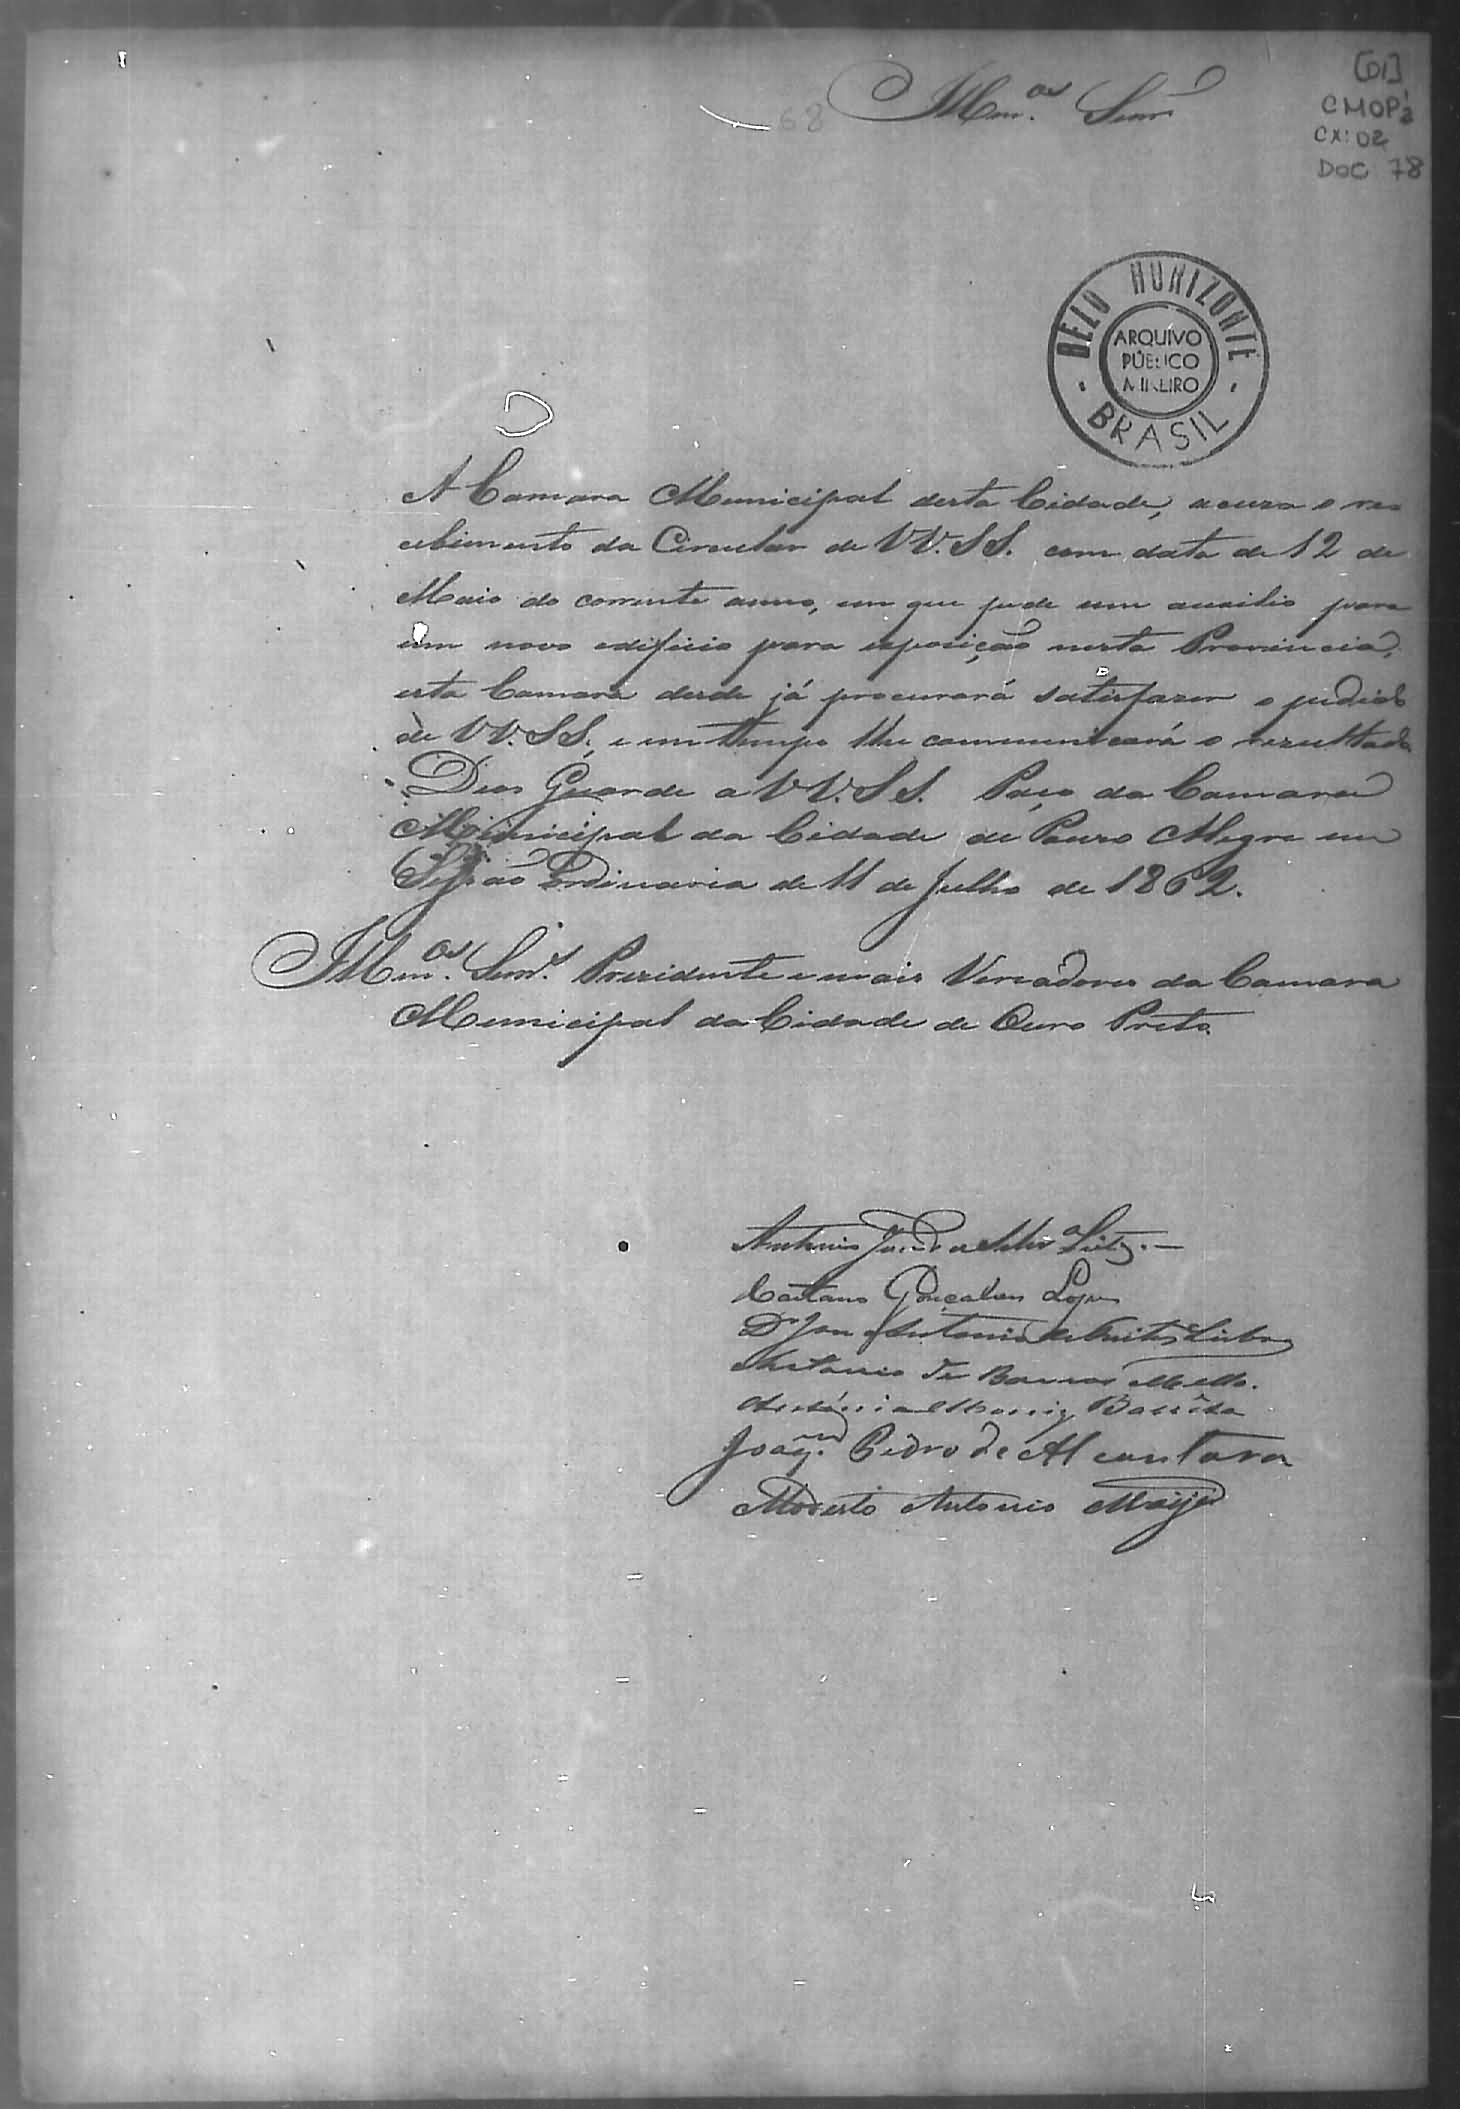 [01]
CMOP
CX: 02
DOC 78
68
Illm.os Senr.
BELO HORIZONTE
ARQUIVO
PÚBLICO
MINEIRO
BRASIL
A Camara Municipal desta Cidade, acusa o re
cebimento da Circular de VV. SS. com data de 12 de
Maio do corrente anno, em que pede um auxilio para
um novo edificio para exposição nesta Provincia,
esta Camara desde já procurará satisfazer o pedido
de VV. SS. e em tempo lhe communicará o resultado
Deos Guarde a VV. SS. Paço da Camara
Municipal da Cidade de Pouso Alegre em
Sessão Ordinaria de 11 de Julho de 1862.
Illm.os Senr.s Prezidente e mais Vereadores da Camara
Municipal da Cidade de Ouro Preto.
Antonio
Caetano Gonçalves Lopes
Dr. José Antonio de Freitas Lisboa
Antonio de Barros Mello.
Joaq.m Pedro de Alcantara
Modesto Antonio